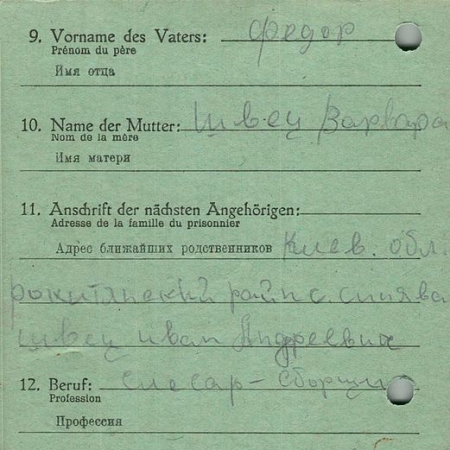 9. Vorname des Vaters: Федор
Prénom du père
Имя отца
10. Name der Mutter: Швец Варвара
Nom de la mère
Имя матери
11. Anschrift der nächsten Angehörigen:
Adresse de la famille du prisonnier
Адрес ближайших родственников Киев. обл.
рокитянский район с. синява
швец иван Андреевич
12. Beruf: слесар-сборщик
Profession
Профессия